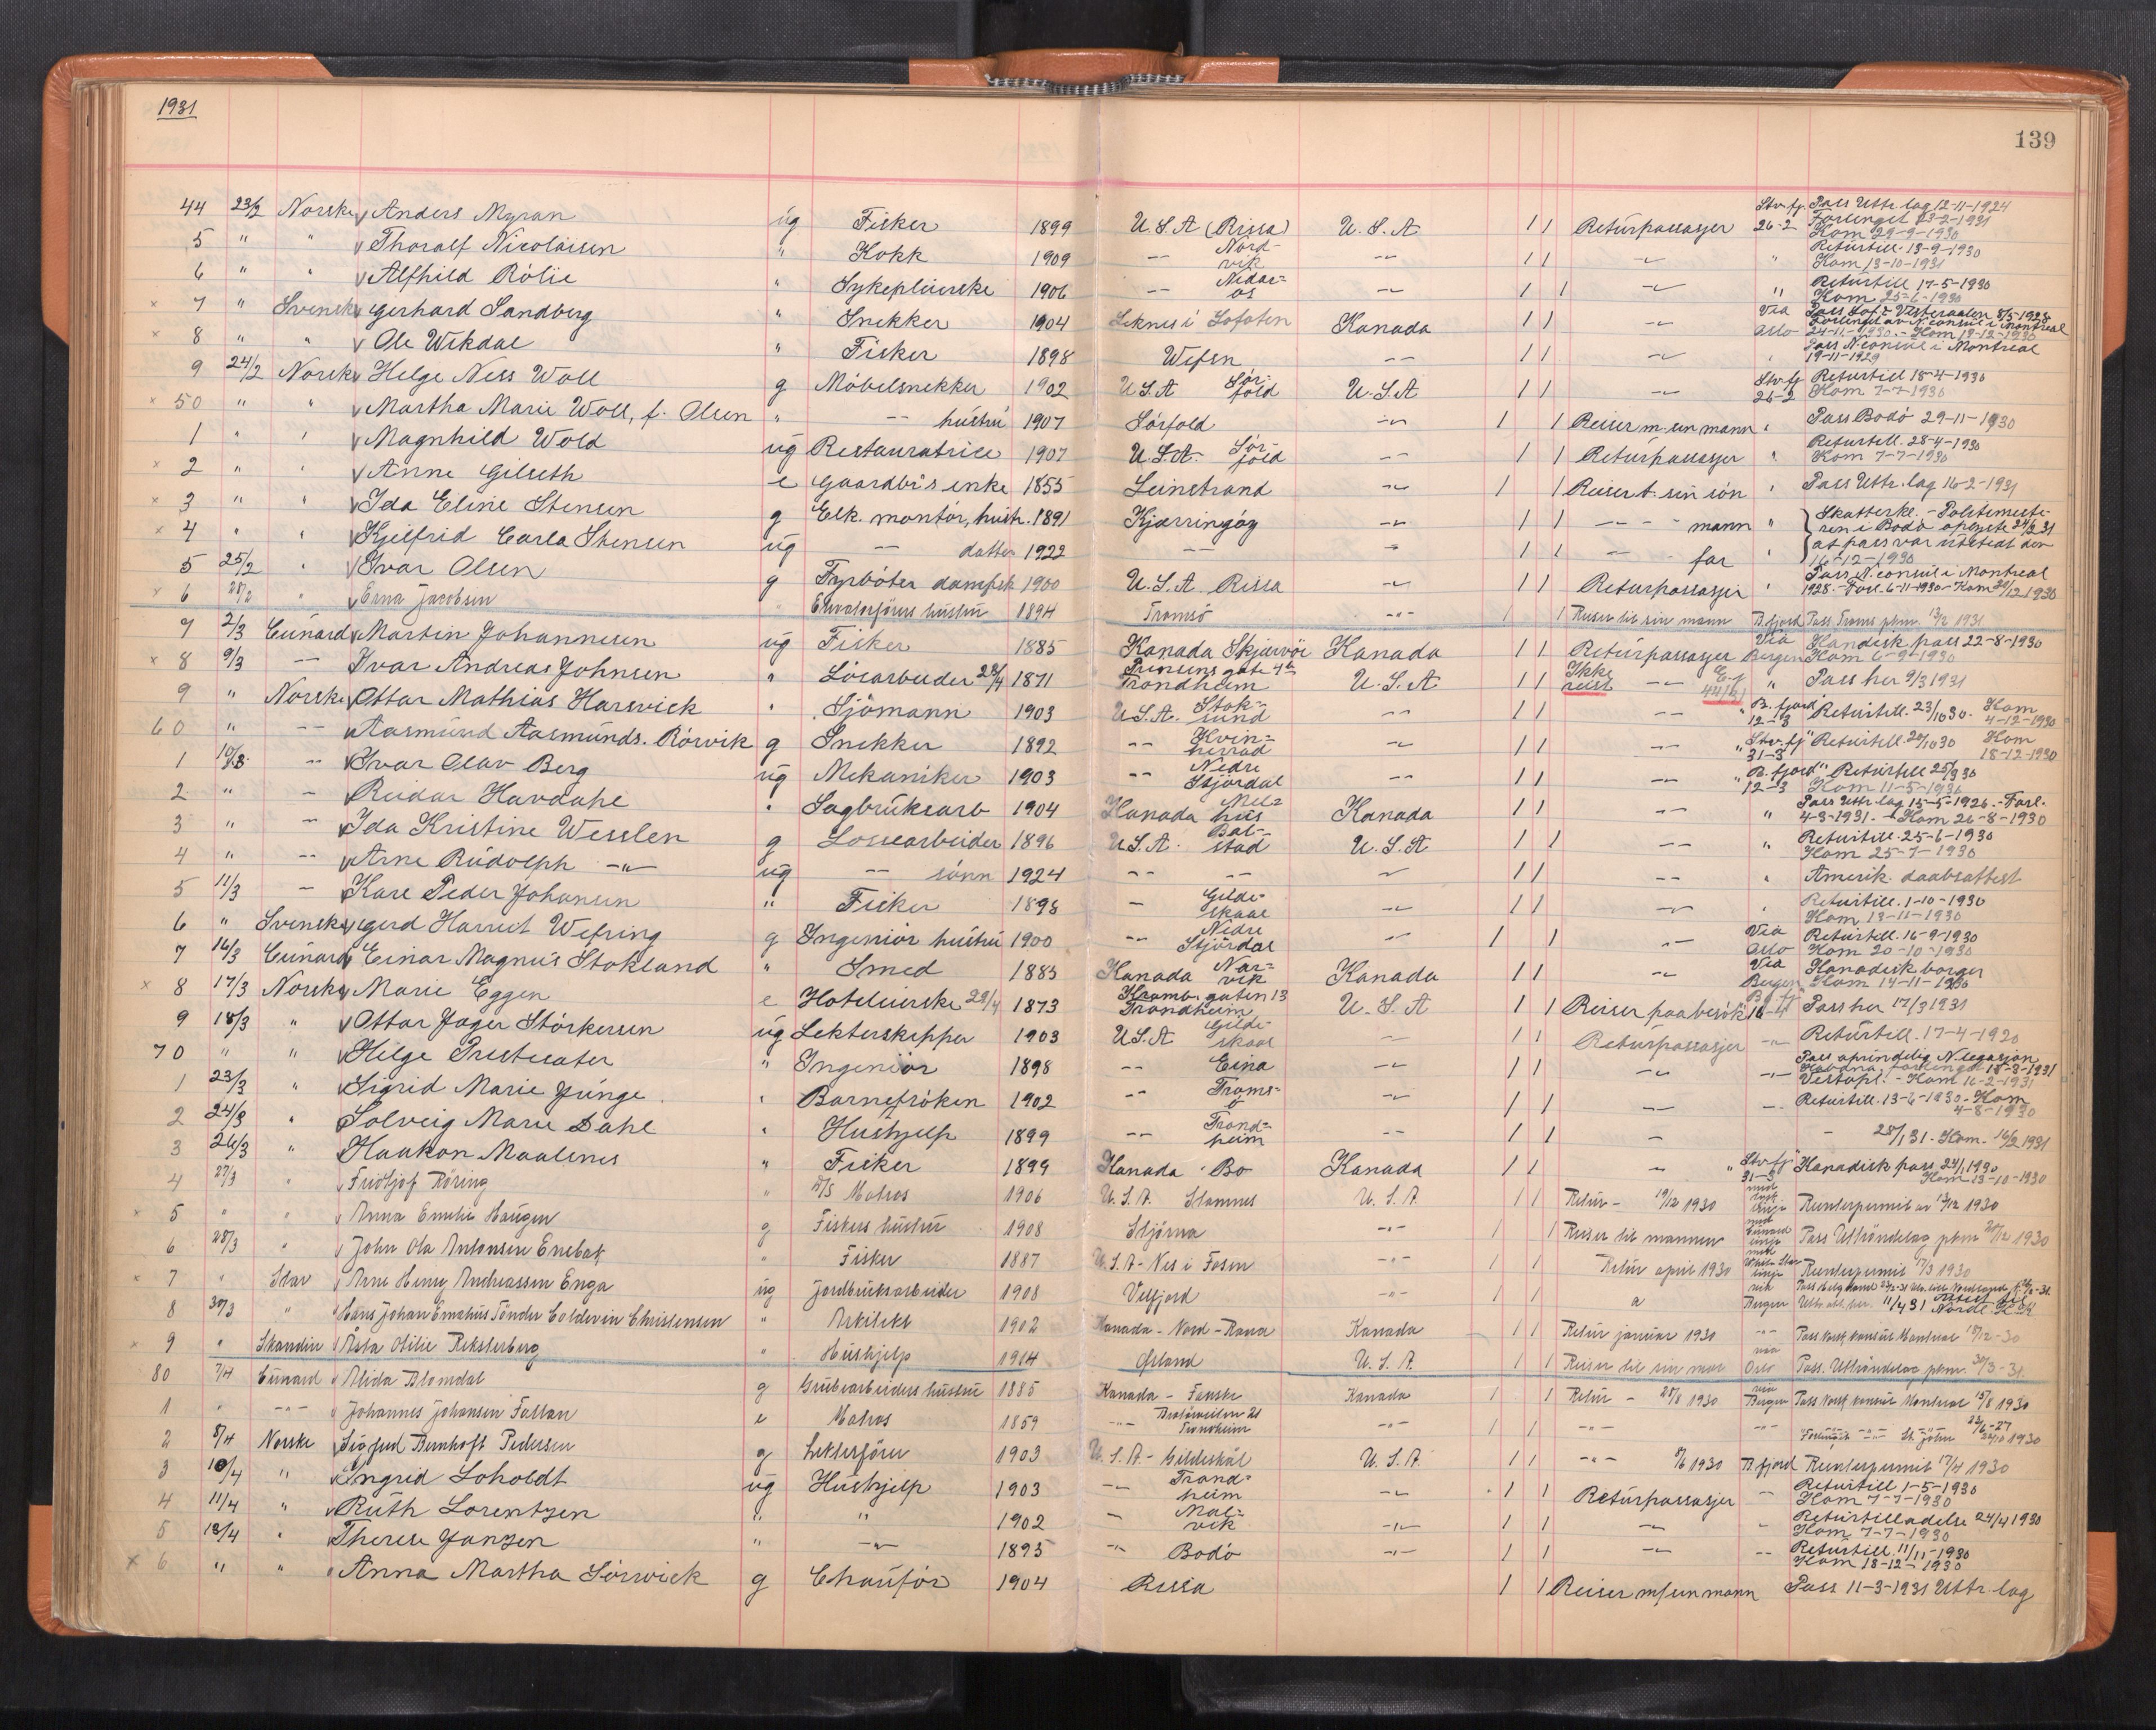 1931
139
44 23/2 Norske Anders Myran ug Fisker 1899 U.S.A (Rissa) U.S.A 1 1 Returpassasjer Stv.fj. 26-2 Pass Uttr.lag 12-11-1924 Forlenget 23-2-1931 Kom 29-9-1930
5 " " Thoralf Nicolaisen " Kokk 1909 -"- Nordvik -"- 1 1 -"- " Returtill. 13-9-1930 Kom 13-10-1931
6 " " Alfhild Rölie " Sykepleierske 1906 -"- Nidaros -"- 1 1 -"- " Returtill 17-5-1930 Kom 25-6-1930
× 7 " Svenske Gerhard Sandberg " Snekker 1904 Leknes i Lofoten Kanada 1 1 -"- Via Oslo Pass Lof. & Vesteraalen 8/5-1928 Forlenget av N. consul i Montreal 24-11-1930. - Kom 19-12-1930
× 8 " " Ole Wikdal " Fisker 1898 Wefsn -"- 1 1 -"- " Pass N. consul i Montreal 19-11-1929
9 24/2 Norske Helge Ness Woll g Möbelsnekker 1902 U.S.A Sörfold U.S.A 1 1 -"- Stv.fj 26-2 Returtill 18-4-1930 Kom 7-7-1930
× 50 " " Martha Marie Woll, f. Olsen " -"- hustru 1907 Sörfold -"- 1 1 Reiser m. sin mann " Pass Bodö 29-11-1930
1 " " Magnhild Wold ug Restauratrice 1907 U.S.A. Sörfold -"- 1 1 Returpassasjer " Returtill. 28-4-1930 Kom 7-7-1930
× 2 " " Anne Gilseth e Gaardbr's enke 1855 Leinstrand -"- 1 1 Reiser t. sin sön " Pass Uttr.lag 16-2-1931
× 3 " " Ida Eline Stensen g Elk. montör, hustr. 1891 Kjærringöy -"- 1 1 -"- mann " Skatterkl. - Politimesteren i Bodö oplyste 24/2 31
× 4 " " Kjelfrid Carla Stensen ug -"- datter 1922 -"- -"- 1 1 -"- far " at pass var utstedt den 16-12-1930
5 25/2 " Ivar Olsen g Fyrböter dampsk 1900 U.S.A. Rissa -"- 1 1 Returpassasjer " Pass N. consul i Montreal 1928. - Forl. 6-11-1930 - Kom 20/12 1930
× 6 28/2 " Erna Jacobsen " hustru 1894 Tromsö -"- 1 1 Reiser til sin mann B.fjord Pass Troms pkm. 13/2 1931
7 2/3 Cunard Martin Johannesen ug Fisker 1885 Kanada Skjærvöi Kanada 1 1 Returpassasjer Via Bergen Kanadisk pass 22-8-1930 Kom 6-9-1930
× 8 9/3 -"- Ivar Andreas Johnsen " Lösarbeider 28/4 1871 Prinsens gate 4b Trondheim U.S.A 1 1 Ikke reist -"- " Pass her 9/3 1931
9 " Norske Ottar Mathias Harsvick " Sjömann 1903 U.S.A. Stoksund -"- 1 1 -"- B.fjord 12-3 Returtill. 23/10 30. Kom 4-12-1930
60 " -"- Aasmund Aasmunds. Rörvik g Snekker 1892 -"- Kvinherrad -"- 1 1 -"- "Stv.fj" 31-3 Returtill. 20/10 30 Kom 18-12-1930
1 10/3 -"- Ivar Olav Berg ug Mekaniker 1903 -"- Nedre Stjördal -"- 1 1 -"- "B.fjord" 12-3 Returtill 25/3 30 Kom 11-5-1930
2 " -"- Reidar Havdahl " Sagbruksarb 1904 Kanada Melhus Kanada 1 1 -"- " Pass Uttr.lag 15-5-1926. - Forl. 4-3-1931. - Kom 26-8-1930
3 " -"- Ida Kristine Wesslen g Lossearbeider 1896 U.S.A. Balstad U.S.A 1 1 -"- " Returtill. 25-6-1930 Kom 25-7-1930
4 " -"- Arne Rudolph -"- ug -"- sönn 1924 -"- -"- -"- 1 1 -"- " Amerik. daabsattest
5 11/3 -"- Kare Peder Johansen " Fisker 1898 -"- Gildeskaal -"- 1 1 -"- " Returtill. 1-10-1930 Kom 13-11-1930
6 " Svenske Gerd Harriet Wefring g Ingeniör hustru 1900 -"- Nedre Stjördal -"- 1 1 -"- Via Oslo Returtill. 16-9-1930 Kom 20-10-1930
7 16/3 Cunard Einar Magnus Stokland " Smed 1883 Kanada Narvik Kanada 1 1 -"- Via Bergen Kanadisk borger Kom 14-11-1930
× 8 17/3 Norske Marie Eggen e Hoteleierske 29/4 1873 Kramb. gaten 13 Trondheim U.S.A 1 1 Reiser paa besök 16-4 Pass her 17/3 1931
9 18/3 " Ottar Jager Störkersen ug Lekterskipper 1903 U.S.A Gildeskaal -"- 1 1 Returpassasjer -"- Returtill. 17-4-1920
70 " " Helge Prestsæter " Ingeniör 1898 -"- Eina -"- 1 1 -"- -"- Pass oprindelig N legasjon Havana, forlenget 18-3-1931 Vestopl. - Kom 16-2-1931
1 23/3 " Sigrid Marie Junge " Barnefröken 1902 -"- Tromsö -"- 1 1 -"- -"- Returtill. 13-6-1930. Kom 4-8-1930
2 24/3 " Solveig Marie Dahl " Hushjelp 1899 -"- Trondheim -"- 1 1 -"- -"- 28/1 31. Kom. 16/2 1931
3 26/3 " Haakon Maalsnes " Fisker 1899 Kanada Bo Kanada 1 1 -"- "Stv.fj" 31-3 Kanadisk pass 24/1 1930 Kom 13-10-1930
4 27/3 " Fridtjof Röring " D/S Matros 1906 U.S.A. Stamnes U.S.A. 1 1 Retur - 19/12 1930 Reenterpermit av 13/12 1930
× 5 " " Anna Emelie Haugen g Fiskers hustru 1908 Stjörna -"- 1 1 Reiser til mannen Pass Uttröndelag pkm 20/12 1930
6 28/3 " John Ola Antonsen Enebak " Fisker 1887 U.S.A - Nes i Fosen -"- 1 1 Retur april 1930 White Star linje Reenterpermit 17/3 1930
× 7 " Star Arne Henry Andreassen Enga ug Jordbruksarbeider 1908 Velfjord -"- 1 1 " via Bergen
8 30/3 " Hans Johan Ernstus Tönder Coldevin Christensen " Arkitekt 1902 Kanada - Nord-Rana Kanada 1 1 Retur januar 1930 -"- Pass norsk konsul Montreal 18/12-30
× 9 " Skandin Asta Otilie Reksterberg " Hushjelp 1914 Örland U.S.A. 1 1 Reiser til sin mor via Oslo Pass. Uttröndelag pkm. 30/3-31.
80 7/4 Cunard Alida Blomdal g Grubearbeiders hustru 1885 Kanada - Fauske Kanada 1 1 Retur - 28/8 1930 via Bergen Pass norsk konsul Montreal 15/8 1930
1 " -"- Johannes Johansen Fallan e Matros 1859 -"- Trondheim -"- 1 1 -"- -"- St. John
2 8/4 Norske Sigfred Bernhoft Pedersen g Lekterförer 1903 U.S.A - Gildeskål U.S.A. 1 1 -"- 1930 B.fjord Reenterpermit 17/4 1930
3 10/4 " Ingrid Loholdt ug Hushjelp 1903 -"- Trondheim -"- 1 1 Returpassasjer -"- Returtill 1-5-1930 Kom 7-7-1930
4 11/4 " Ruth Lorentzen " " 1902 -"- Malvik -"- 1 1 -"- -"- Returtilladelse 24/4 1930 Kom 7-7-1930
5 13/4 " Therese Janzen " -"- 1895 -"- Bodö -"- 1 1 -"- -"- Returtill. 11/11-1930 Kom 18-12-1930
× 6 " " Anna Martha Sörwick g Chauför 1904 Rissa 1 1 Reiser m/sin mann Pass 11-3-1931 Uttr.lag